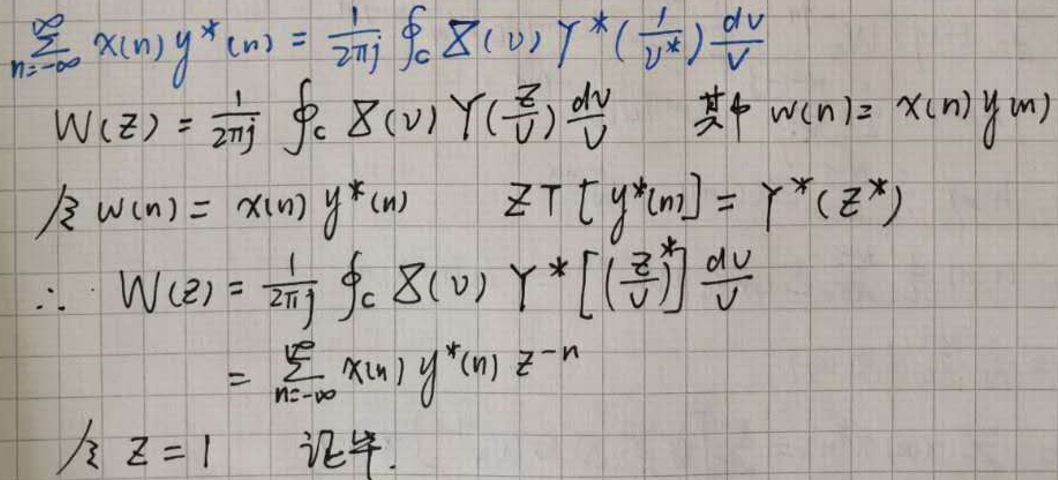 ∞∑n=-∞ x(n) y*(n) = 1/2πj ∮c X(v) Y*(1/v*) dv/v
W(z) = 1/2πj ∮c X(v) Y(z/v) dv/v 其中 w(n) = x(n) y(n)
令 w(n) = x(n) y*(n) ZT[y*(n)] = Y*(z*)
∴ W(z) = 1/2πj ∮c X(v) Y*[(z/v)*] dv/v
= ∞∑n=-∞ x(n) y*(n) z^-n
令 z = 1 证毕.